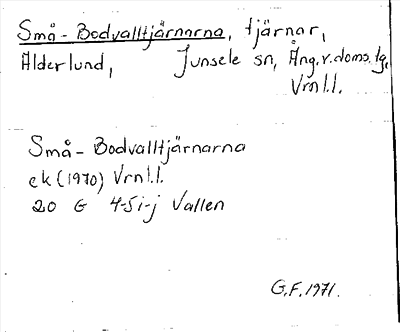 Små-Bodvalltjärnarna, tjärnar,
Alderlund, Junsele sn, Ång.v.doms.tg,
Vrnl.l.
Små-Bodvalltjärnarna
ek (1970) Vrnl.l.
20 G 4-5i-j Vallen
G.F. 1971.